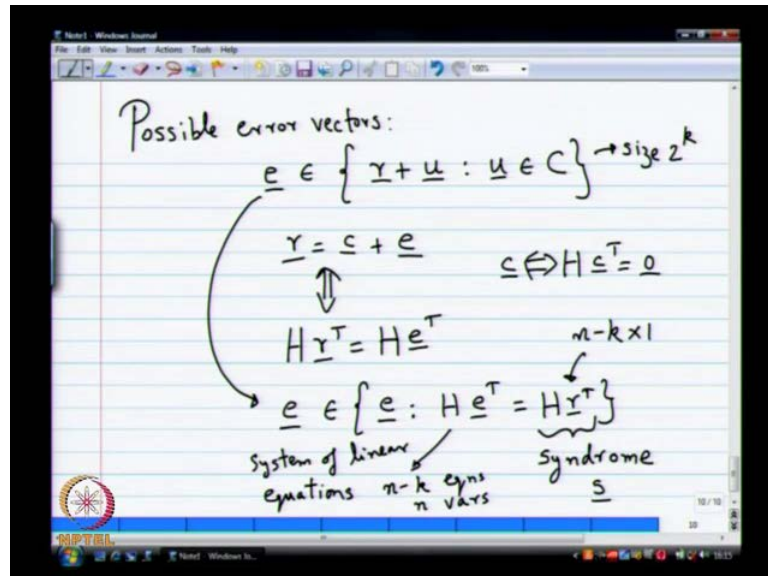 Note1 - Windows Journal
File Edit View Insert Actions Tools Help
100%
Possible error vectors:
e ∈ { r + u : u ∈ C } → size 2^k
r = c + e
c ⇔ H c^T = 0
⇕
H r^T = H e^T
n-k × 1
e ∈ { e : H e^T = H r^T }
system of linear equations
n-k eqns
n vars
syndrome
s
10 / 10
10
NPTEL
Note1 - Windows Jo...
16:15